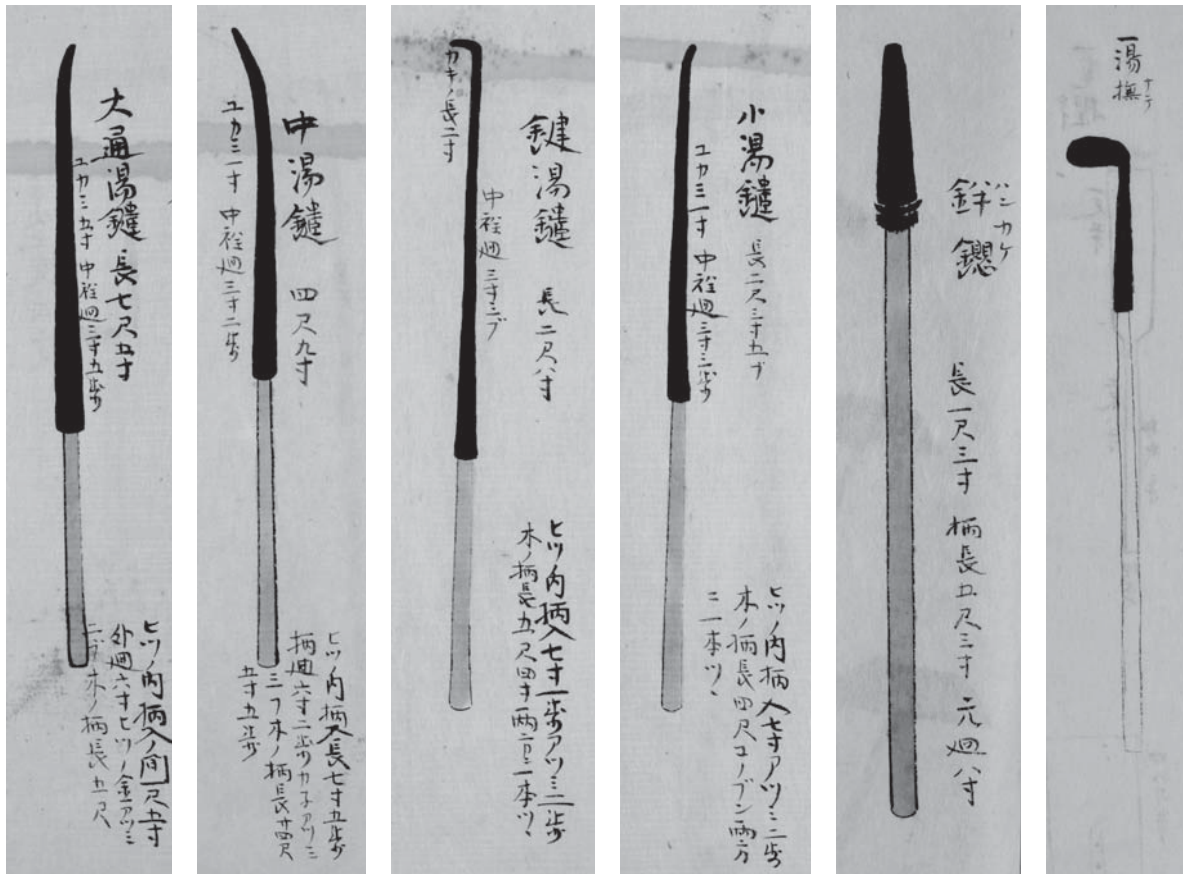 大通湯鑓 長七尺五寸
ユカミ五寸 中程廻三寸五歩
ヒツノ内柄入ノ間一尺五寸
外廻六寸ヒツノ金アツミ
二ブ木ノ柄長五尺
中湯鑓 四尺九寸
ユカミ一寸 中程廻三寸二歩
ヒツノ内柄入長七寸五歩
柄廻六寸二歩カネアツミ
三フ木ノ柄長サ四尺
五寸五歩
鍵湯鑓 長二尺八寸
中程廻三寸三ブ
カキノ長二寸
ヒツノ内柄入七寸一歩アツミ二歩
木ノ柄長五尺四寸両方ニ一本ツヽ
小湯鑓 長二尺三寸五ブ
ユカミ一寸 中程廻三寸三歩
ヒツノ内柄入七寸アツミ二歩
木ノ柄長四尺コノブン両方
ニ一本ツヽ
ハニカケ
長一尺三寸 柄長五尺三寸 元廻八寸
一湯撫
ナテ